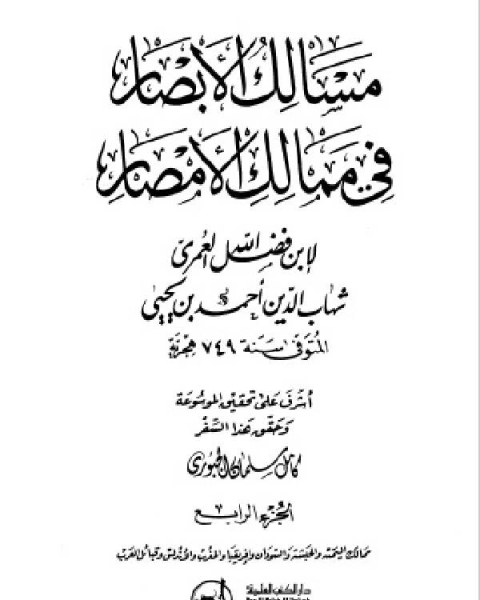 مسالك الأبصار
في ممالك الأمصار
لابن فضل الله العمري
شهاب الدين أحمد بن يحيى
المتوفى سنة ٧٤٩ هجرية
أشرف على تحقيق الموسوعة
وحقق هذا السفر
كامل سلمان الجبوري
الجزء الرابع
ممالك اليمن والحبشة والسودان وإفريقيا والمغرب والأندلس وقبائل العرب
دار الكتب العلمية